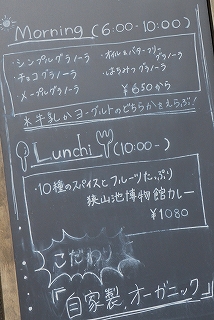 Morning (6:00-10:00)
・シンプルグラノーラ
・チョコグラノーラ
・メープルグラノーラ
・オイル&バターフリーグラノーラ
・はちみつグラノーラ
¥650から
※牛乳かヨーグルトのどちらかをえらぶ!
Lunchi (10:00-)
・10種のスパイスとフルーツたっぷり
狭山池博物館カレー
¥1080
こだわり
「自家製.オーガニック」